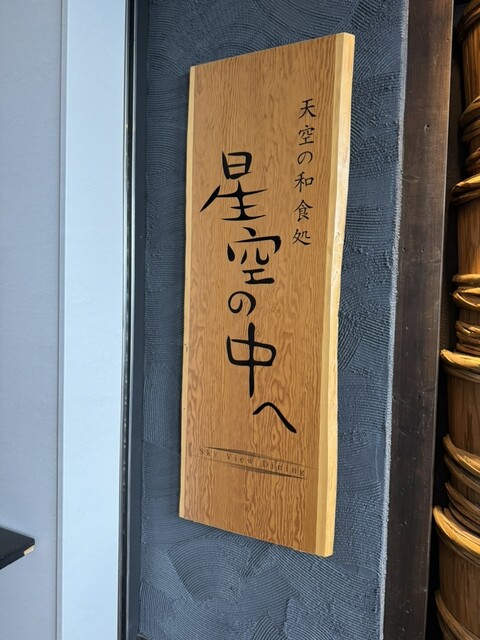 天空の和食処
星空の中へ
Sky View Dining